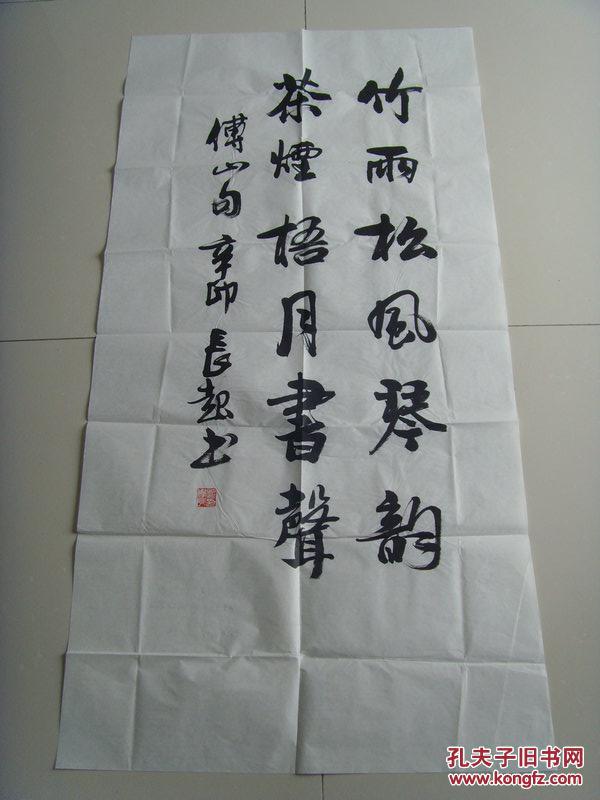 竹雨松风琴韵
茶煙梧月書聲
傅山句 辛卯 長起书
孔夫子旧书网
www.kongfz.com